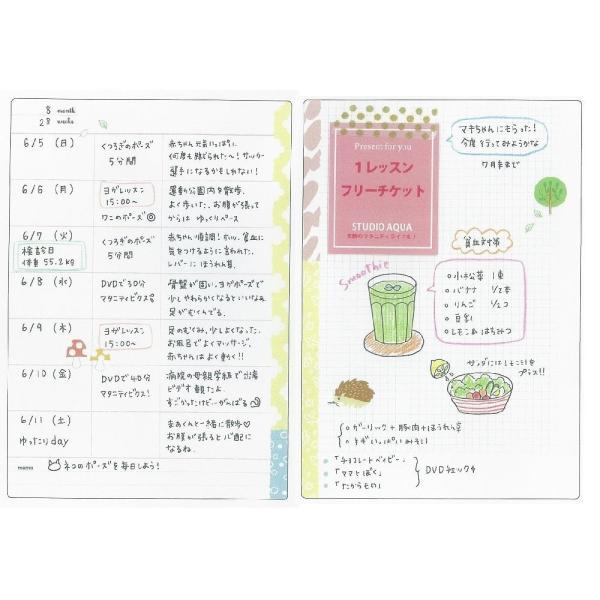 8 month
28 weeks
6/5 (日)
くつろぎのポーズ
5分間
赤ちゃん元気いっぱいに
何度も蹴られた〜! サッカー
選手になるかもしれない!
6/6 (月)
ヨガレッスン
15:00〜
ワニのポーズ
運動公園内を散歩。
よく歩いた。お腹が張って
からは ゆっくりペース
6/7 (火)
検診日
体重 55.2kg
くつろぎのポーズ
5分間
赤ちゃん順調! ホッ。貧血に
気をつけるように言われた。
レバーに ほうれん草。
6/8 (水)
DVDで30分
マタニティビクス
骨盤が固い。ヨガポーズで
少しやわらかくなるといいなぁ
足がむくんでる。
6/9 (木)
ヨガレッスン
15:00〜
足のむくみ、少しよくなった。
お風呂でよくマッサージ。
赤ちゃんはよく動く!!
6/10 (金)
DVDで40分
マタニティビクス!
病院の母親学級で出産
ビデオ観たよ。
すごかったけど…がんばる
6/11 (土)
ゆったりday
まぁくんと一緒に散歩♡
お腹が張ると心配に
なるね。
memo ネコのポーズを毎日しよう!
Present for you
1レッスン
フリーチケット
STUDIO AQUA
マキちゃんにもらった!
今度行ってみようかな
7月末まで
貧血対策
Smoothie
小松菜 1束
バナナ 1/2本
りんご 1/2コ
豆乳
レモン&はちみつ
サラダにはレモン汁を
プラス!!
ガーリック+豚肉+ほうれん草
ネギいっぱいみそ汁
・「チョコレートベイビー」
・「ママとぼく」
・「たからもの」
DVDチェック